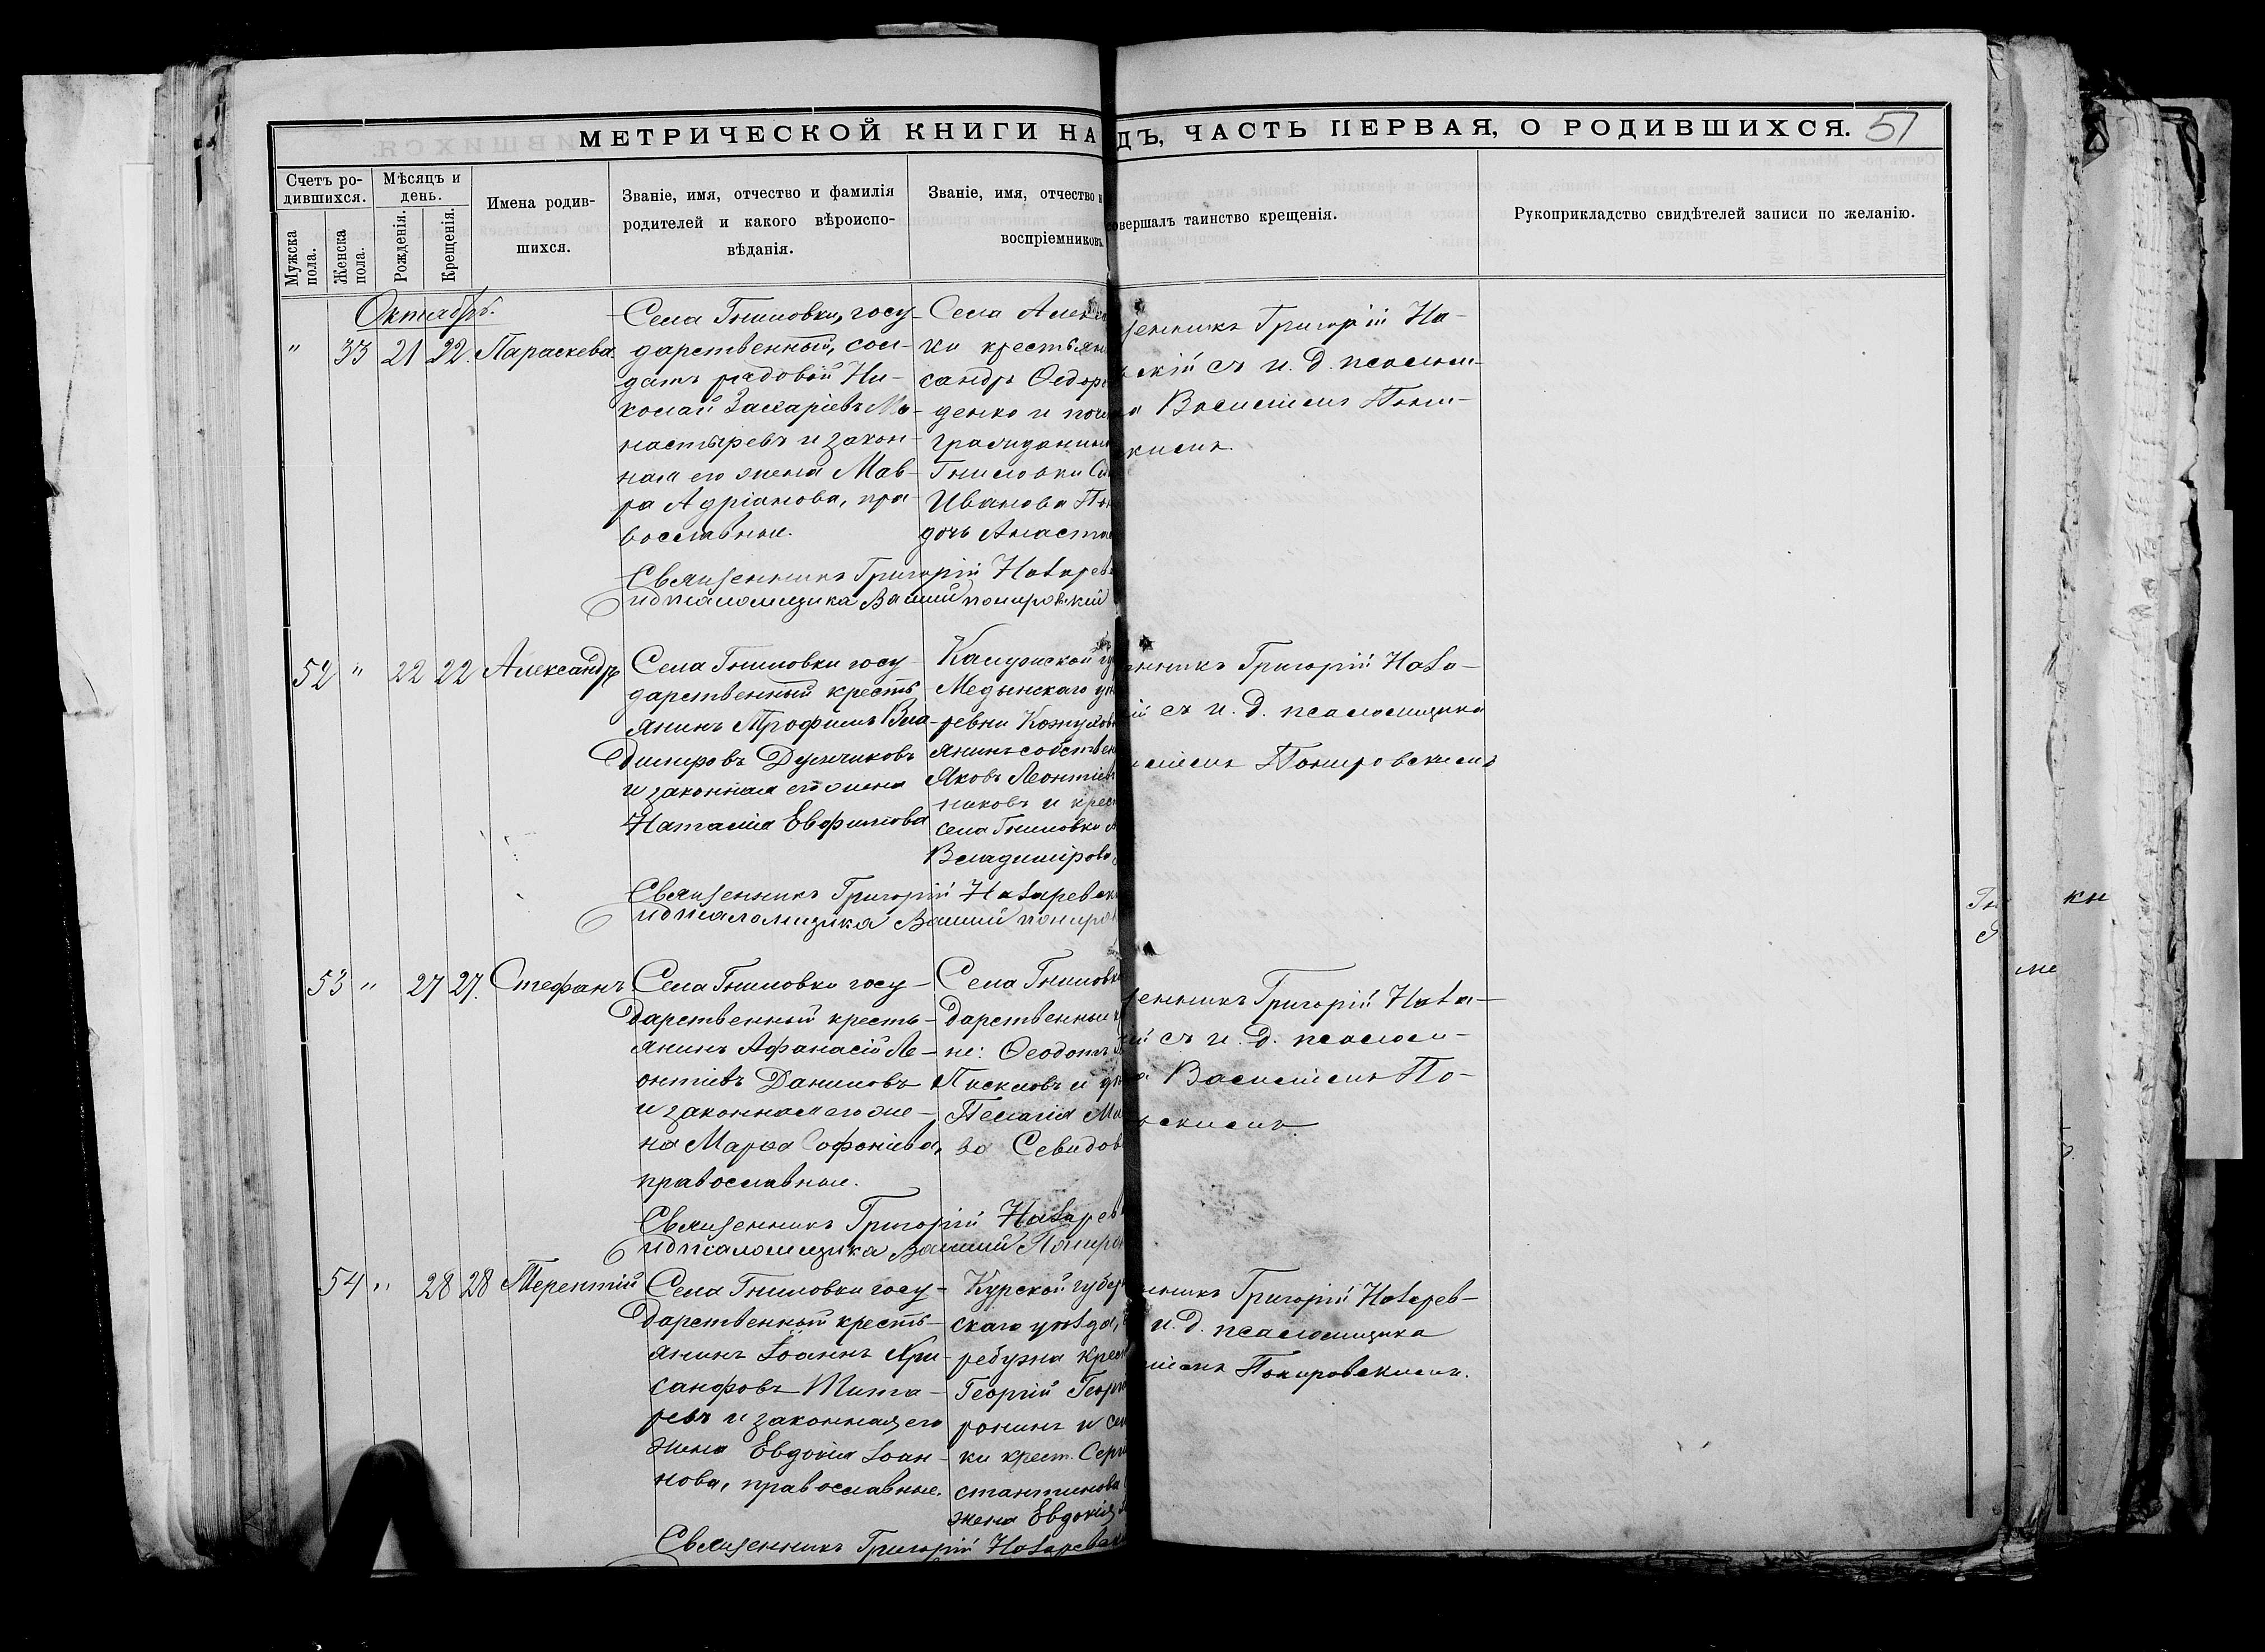 МЕТРИЧЕСКОЙ КНИГИ НА
ДЪ, ЧАСТЬ ПЕРВАЯ, О РОДИВШИХСЯ. 51
Счетъ ро-
дившихся.
Мужска
пола.
Женска
пола.
Мѣсяцъ и
день.
Рожденія.
Крещенія.
Имена родив-
шихся.
Званіе, имя, отчество и фамилія
родителей и какого вѣроиспо-
вѣданія.
Званіе, имя, отчество и
воспріемниковъ.
совершалъ таинство крещенія.
Рукоприкладство свидѣтелей записи по желанію.
Октябрь.
" 33 21 22. Параскева
Села Гниловки, госу-
дарственный, сол-
датъ рядовой Ни-
колай Захаріевъ Мо-
настыревъ и закон-
ная его жена Мав-
ра Адріанова, пра-
вославные.
Села Алек
ки крестьян
сандръ Ѳедор
денко и
гражданин
Гниловки
Иванова
дочь Анаста
Священникъ Григорій Назарев
и д псаломщика Василій Покировскій
щенникъ Григорій На-
скій съ и. д. псалом-
а Василіемъ Поки-
кимъ.
52 " 22 22 Александръ
Села Гниловки госу-
дарственный кресть
янинъ Трофимъ Вла-
диміровъ Думчиковъ
и законная его жена
Наталія Евфимова
Калужской гу
Медынскаго уѣ
ревни Кожухов
янинъ собствен
Яковъ Леонтіев
никовъ и крест
села Гниловки
Владимірова
Священникъ Григорій Назаревск
и д псаломщика Василій Покиров
енникъ Григорій Наза-
ій съ и. д. псаломщика
иліемъ Покировскимъ
53 " 27 27. Стефанъ
Села Гниловки госу-
дарственный кресть-
янинъ Афанасій Ле-
онтіевъ Даниловъ
и законная его же-
на Марѳа Софоніева,
православные.
Села Гниловки
дарственные к
не: Ѳеодотъ
Писклов и
Пелагія Ма
ва Севидов
Священникъ Григорій Назарев
и д псаломщика Василій Покиров
щенникъ Григорій Наза-
ій съ и. д. псалом-
а Василіемъ По-
вскимъ.
54 " 28 28 Терентій
Села Гниловки госу-
дарственный кресть-
янинъ Іоаннъ Хри-
санфовъ Шита-
ревъ и законная его
жена Евдокія Іоан-
нова, православные.
Курской губер
скаго уѣзда,
ребужа крес
Георгій Георг
ронинъ и сел
ки крест. Серг
стантинова
жена Евдокія
Священникъ Григорій Назаревск
енникъ Григорій Назарев-
и. д. псаломщика
иліемъ Покировскимъ.
Гн
кн